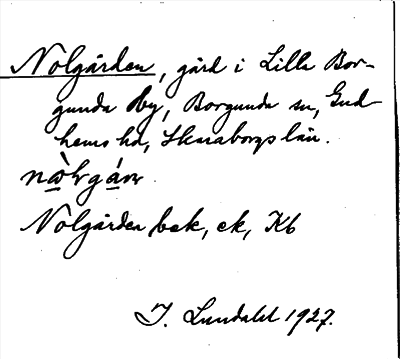 Nolgården, gård i Lilla Bor-
gunda by, Borgunda sn, Gud-
hems hd, Skaraborgs län.
Nolgården bek, ek, Kb
I. Lundahl 1927.